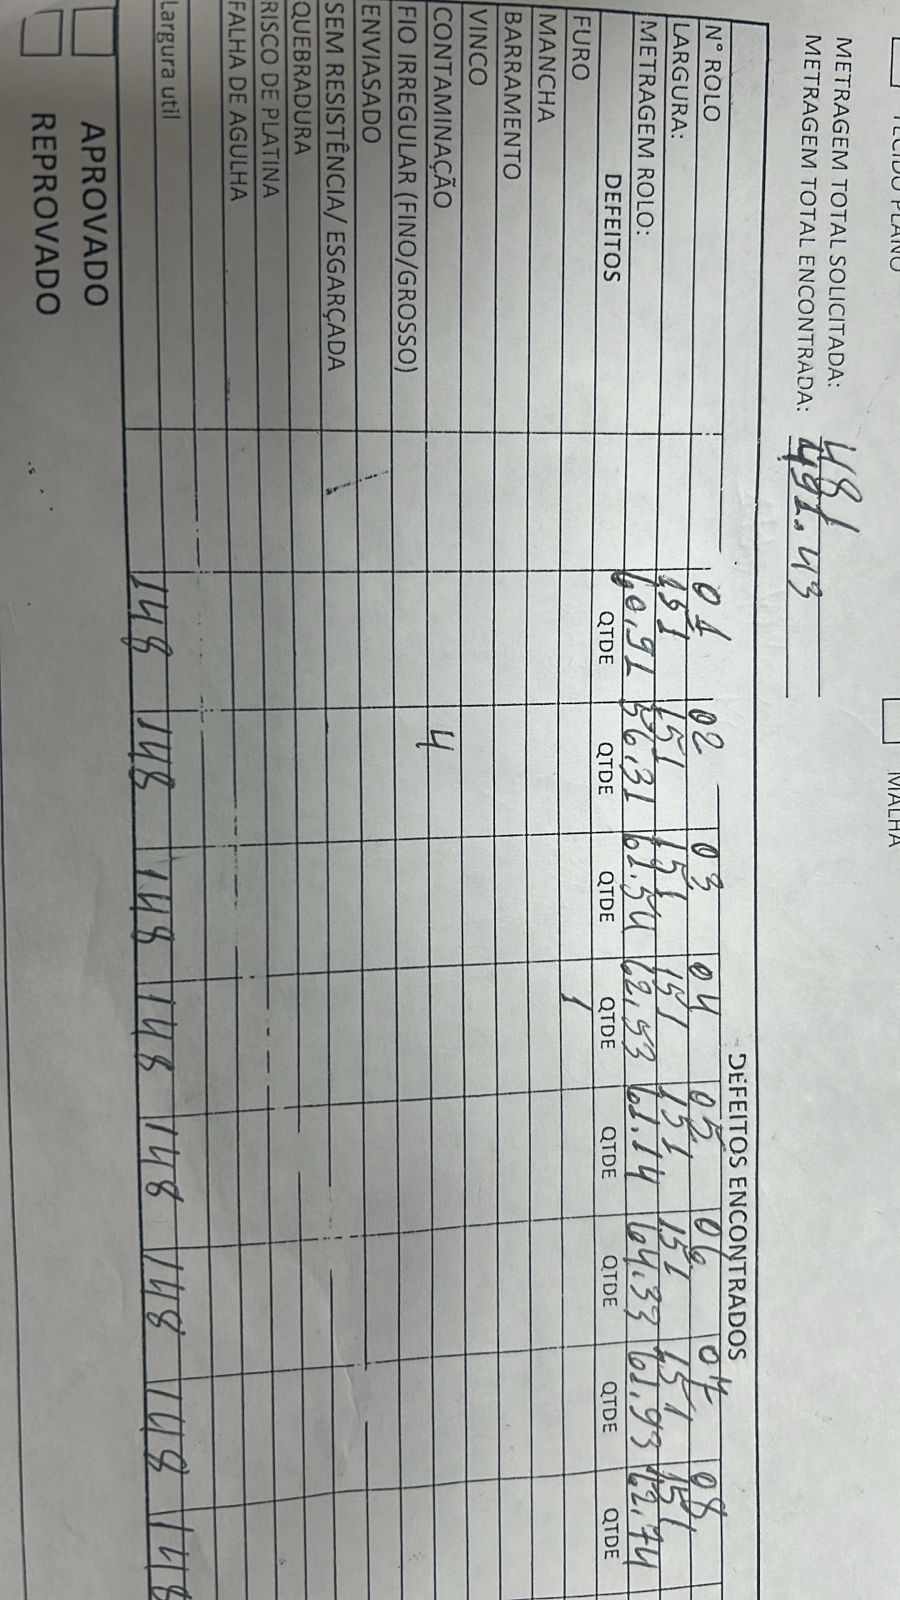 TECIDO PLANO MALHA
METRAGEM TOTAL SOLICITADA: 481
METRAGEM TOTAL ENCONTRADA: 491.43
DEFEITOS ENCONTRADOS
N° ROLO 01 02 03 04 05 06 07 08
LARGURA: 151 151 151 151 151 151 151 151
METRAGEM ROLO: 60,91 56,31 61.54 62,53 61.14 64.33 61.93 62.74
DEFEITOS QTDE QTDE QTDE QTDE QTDE QTDE QTDE QTDE
FURO 1
MANCHA
BARRAMENTO
VINCO
CONTAMINAÇÃO 4
FIO IRREGULAR (FINO/GROSSO)
ENVIASADO
SEM RESISTÊNCIA/ ESGARÇADA
QUEBRADURA
RISCO DE PLATINA
FALHA DE AGULHA
Largura util 148 148 148 148 148 148 148 148
APROVADO
REPROVADO